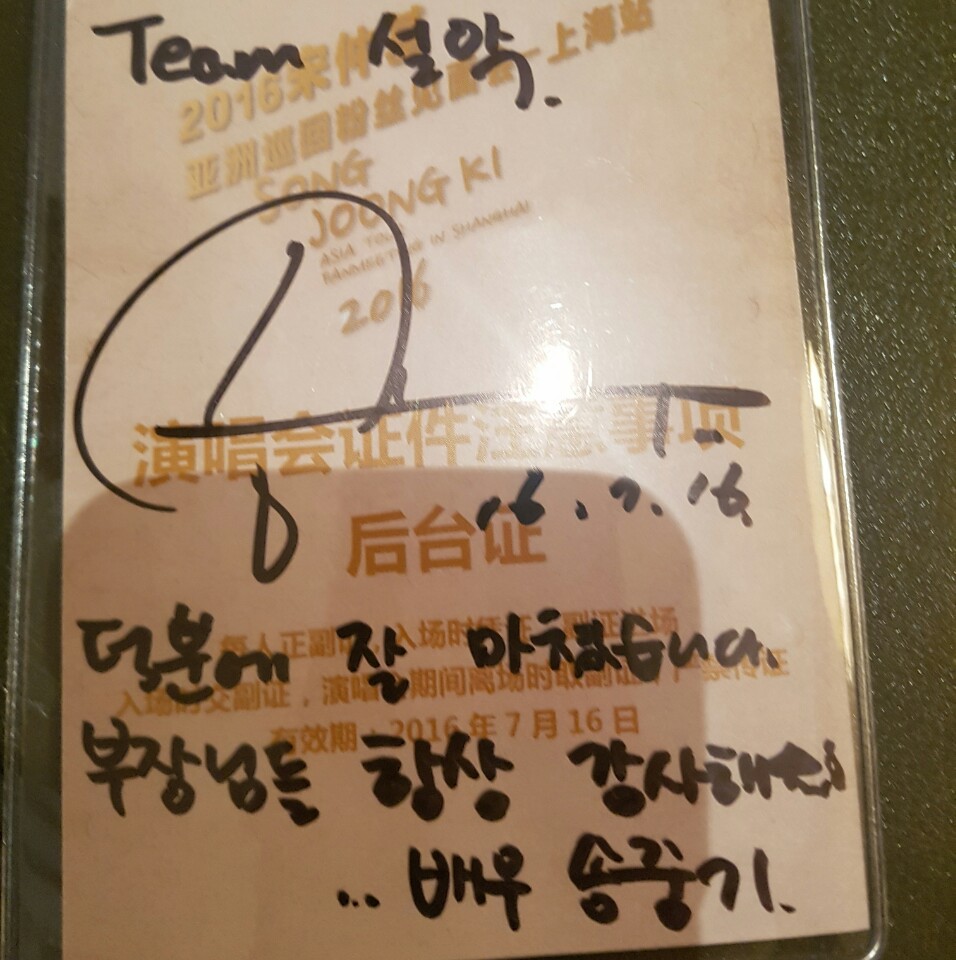 Team 설악.
2016宋仲基
亚洲巡回粉丝见面会—上海站
SONG
JOONG KI
ASIA TOUR
FANMEETING IN SHANGHAI
2016
演唱会证件注意事项
16.7.16.
后台证
덕분에 잘 마쳤습니다.
每人正副证 入场时 副证进场
入场时交副证，演唱 期间离场时取副证 严禁传证
有效期：2016年7月16日
부장님들 항상 감사해요
... 배우 송중기.